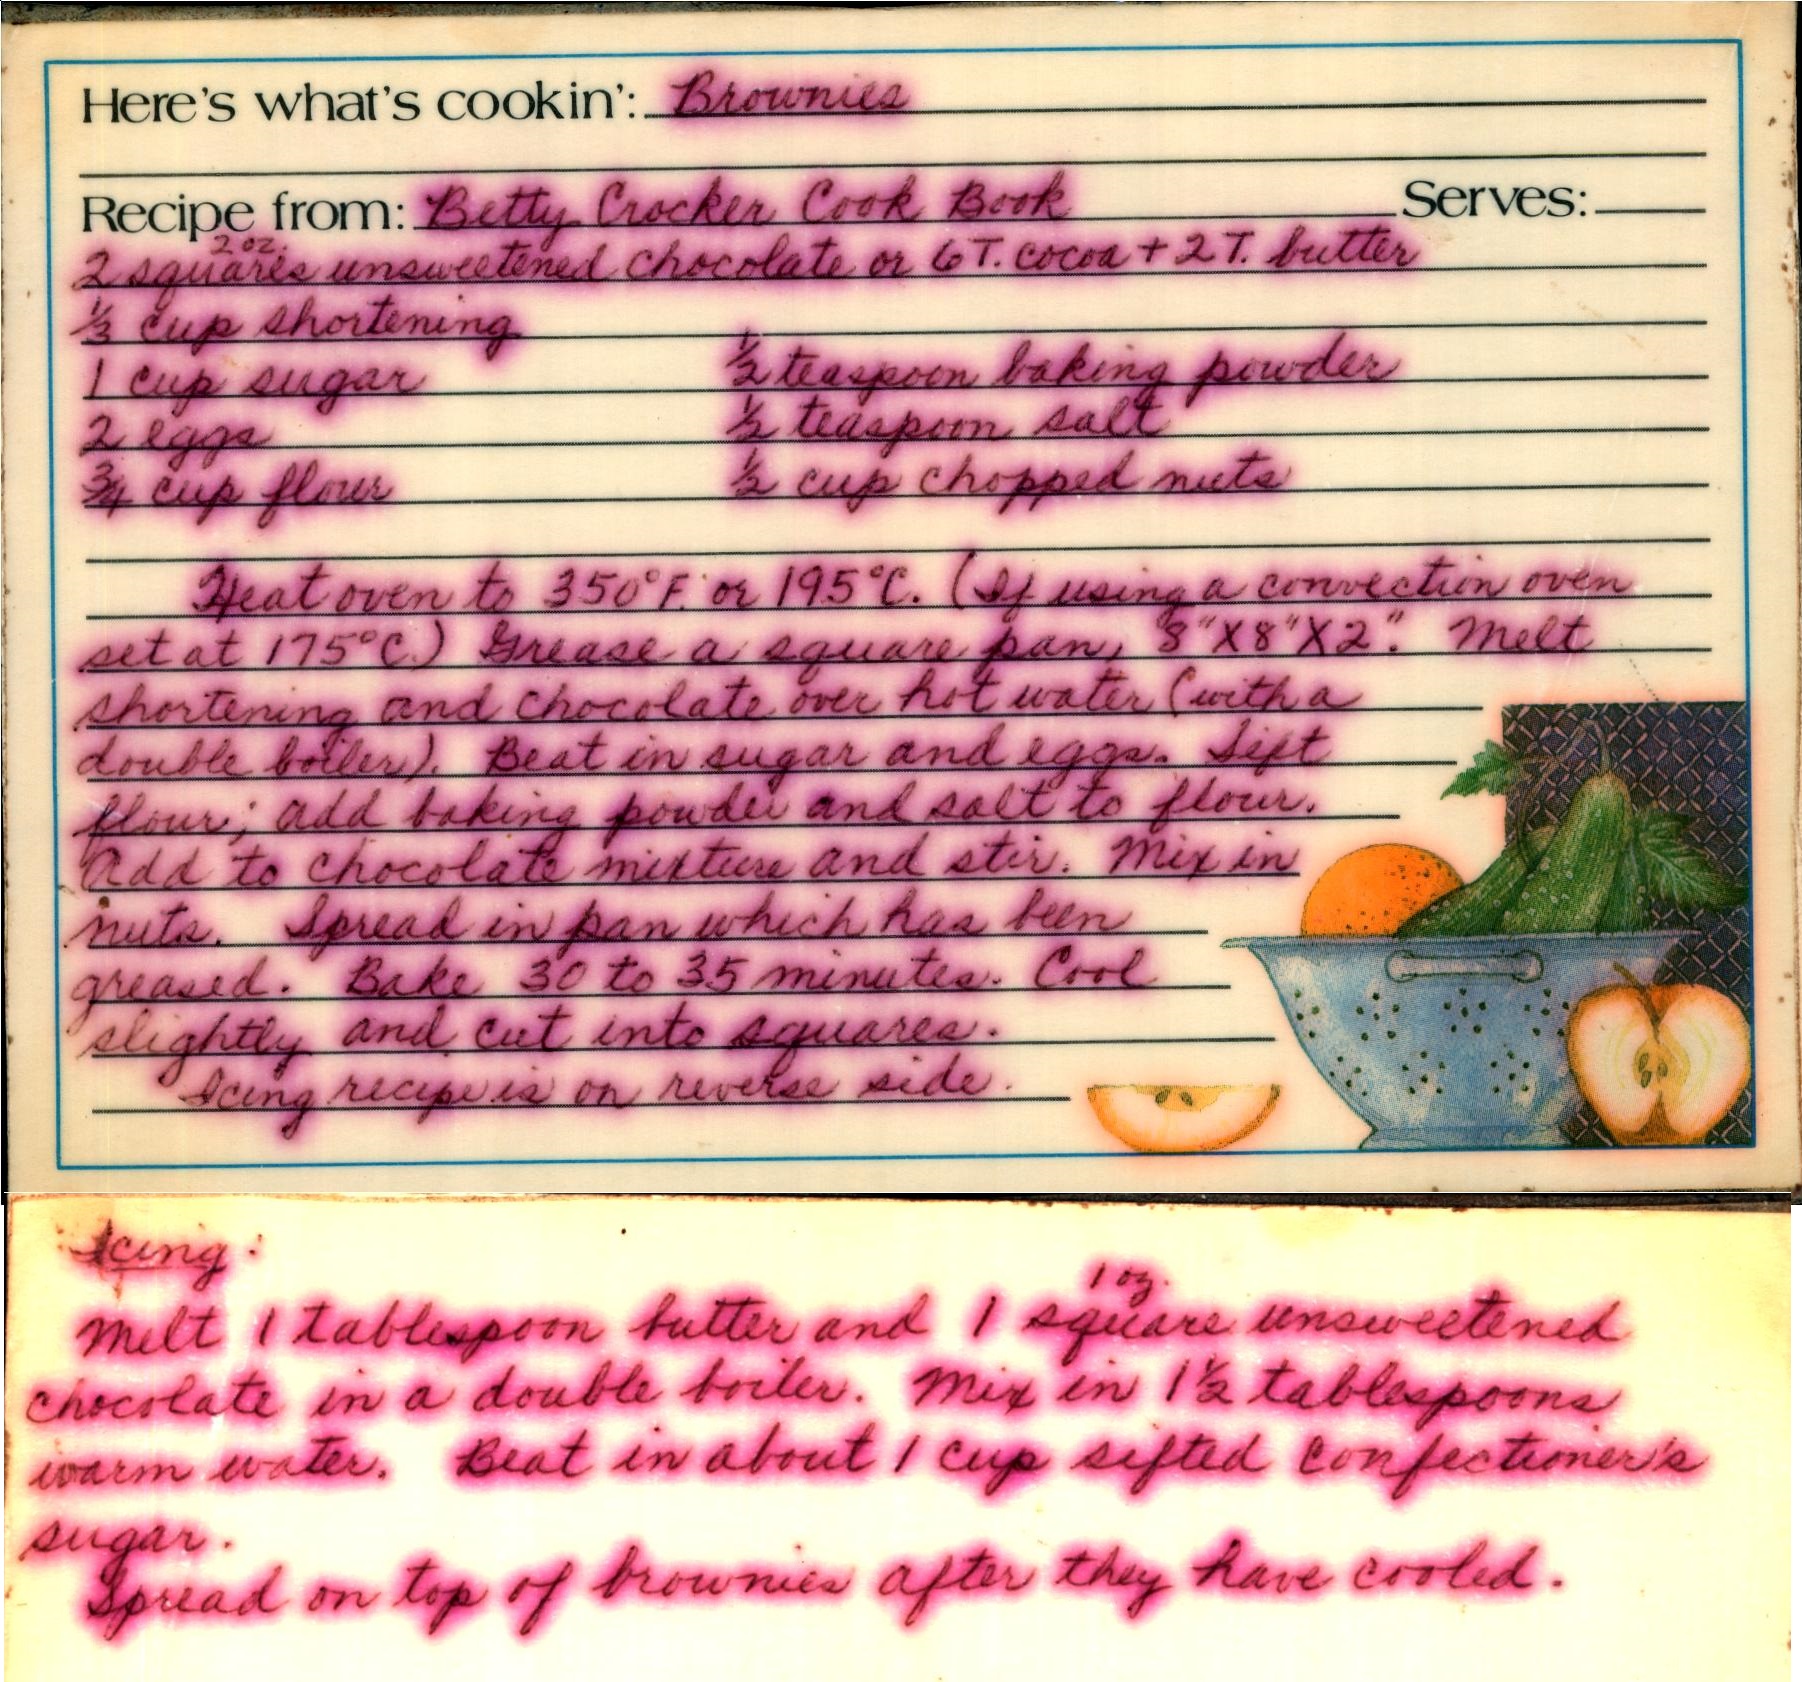 Here's what's cookin': Brownies
Recipe from: Betty Crocker Cook Book Serves:
2 oz.
2 squares unsweetened chocolate or 6 T. cocoa + 2 T. butter
1/3 cup shortening
1 cup sugar 1/2 teaspoon baking powder
2 eggs 1/2 teaspoon salt
3/4 cup flour 1/2 cup chopped nuts
Heat oven to 350°F. or 195°C. (If using a convection oven
set at 175°C.) Grease a square pan, 8"X8"X2". Melt
shortening and chocolate over hot water (with a
double boiler). Beat in sugar and eggs. Sift
flour; add baking powder and salt to flour.
Add to chocolate mixture and stir. Mix in
nuts. Spread in pan which has been
greased. Bake 30 to 35 minutes. Cool
slightly and cut into squares.
Icing recipe is on reverse side.
Icing:
1 oz.
Melt 1 tablespoon butter and 1 square unsweetened
chocolate in a double boiler. Mix in 1 1/2 tablespoons
warm water. Beat in about 1 cup sifted confectioner's
sugar.
Spread on top of brownies after they have cooled.